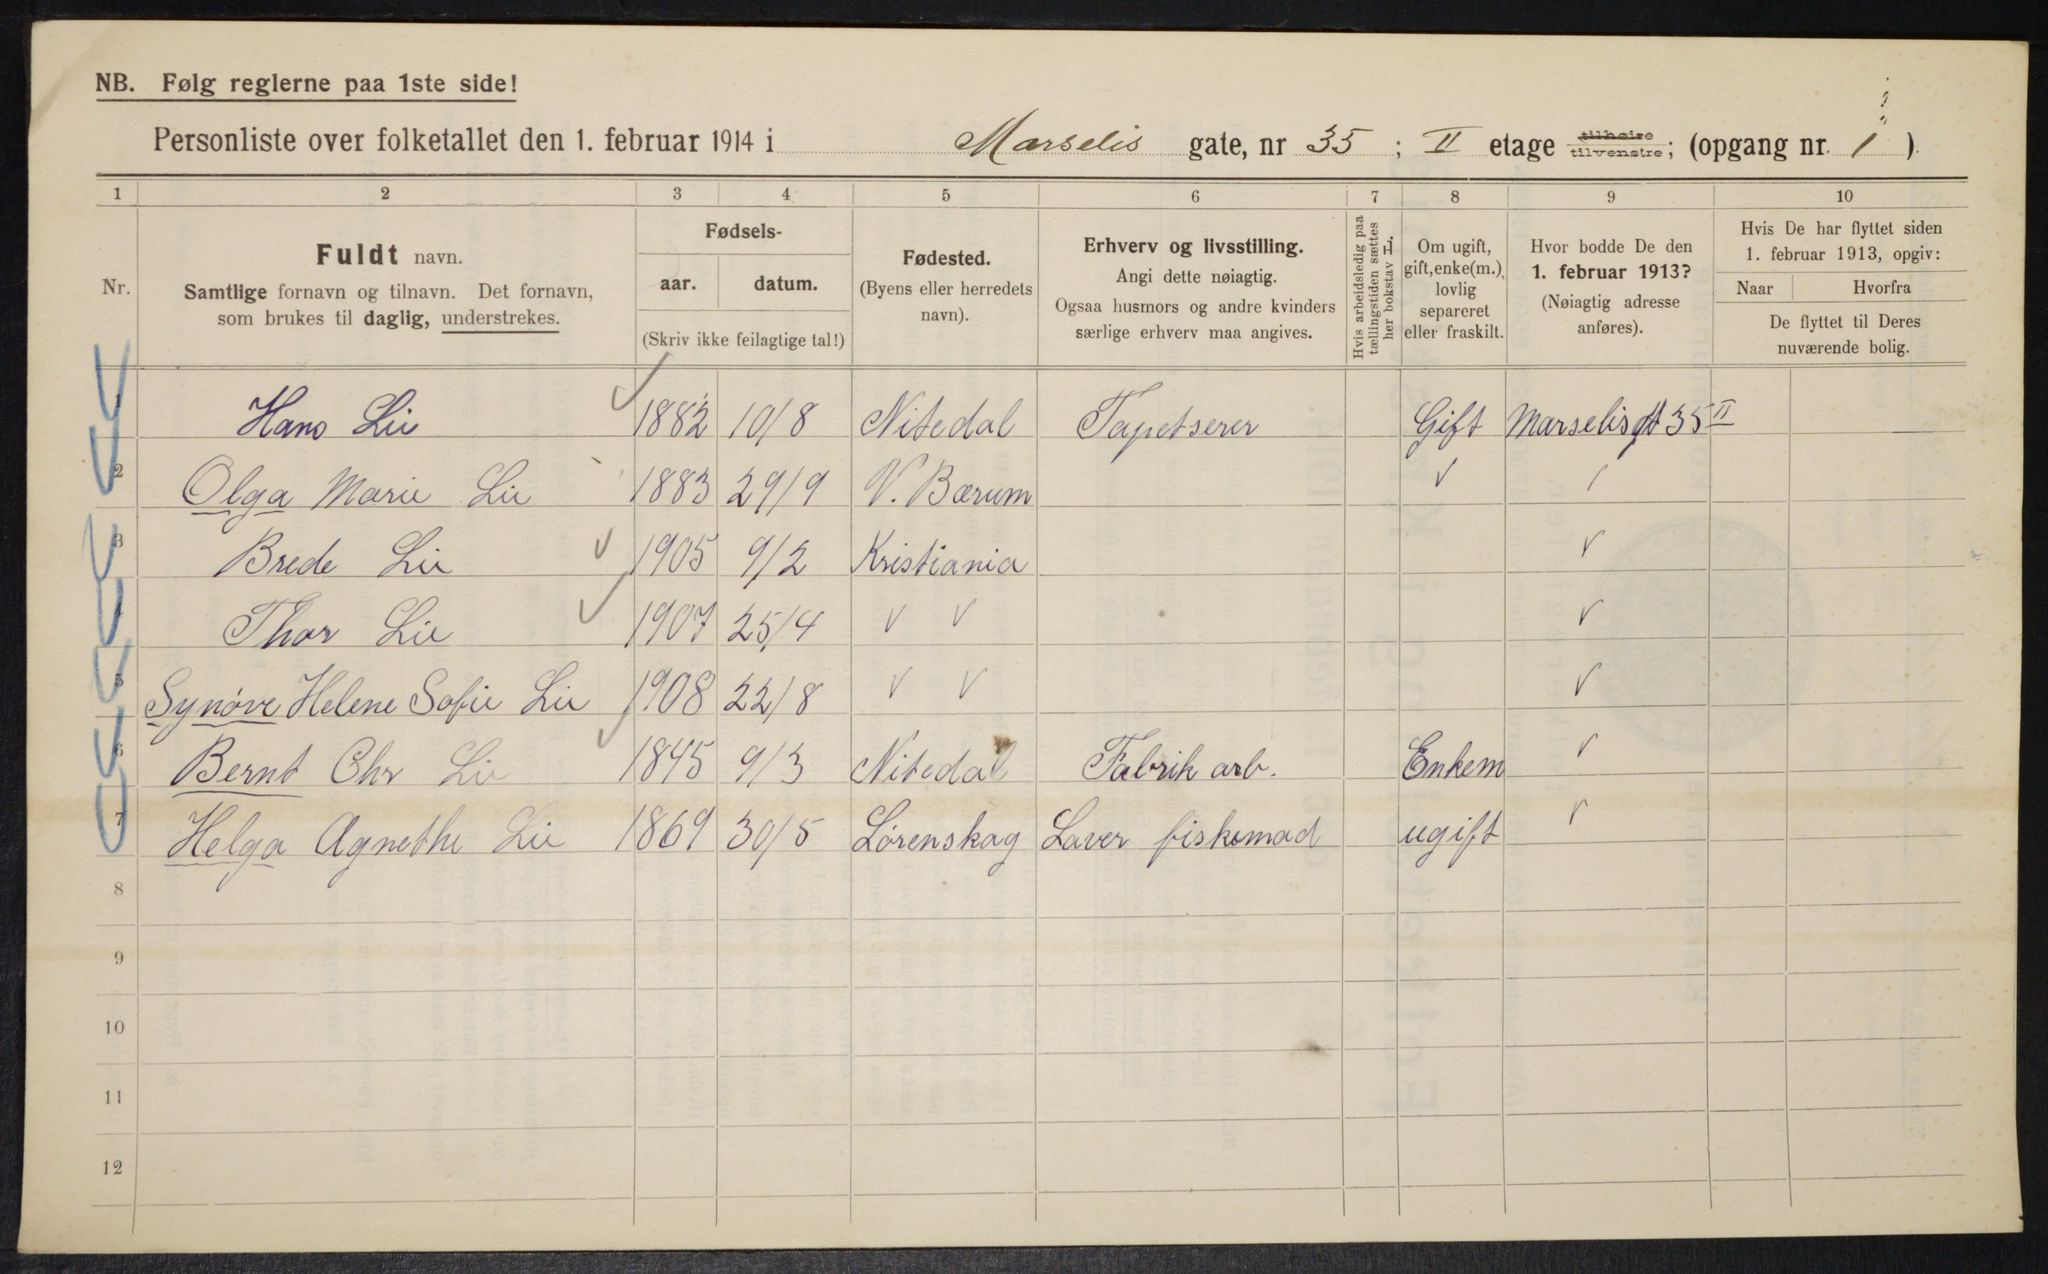 NB. Følg reglerne paa 1ste side!
Personliste over folketallet den 1. februar 1914 i Marselis gate, nr 35 ; II etage tilhøire tilvenstre; (opgang nr. 1 ).
1 2 3 4 5 6 7 8 9 10
Nr.
Fuldt navn.
Samtlige fornavn og tilnavn. Det fornavn,
som brukes til daglig, understrekes.
Fødsels-
aar. datum.
(Skriv ikke feilagtige tal!)
Fødested.
(Byens eller herredets
navn).
Erhverv og livsstilling.
Angi dette nøiagtig.
Ogsaa husmors og andre kvinders
særlige erhverv maa angives.
Hvis arbeidsledig paa
tællingstiden sættes
her bokstav L.
Om ugift,
gift, enke(m.),
lovlig
separeret
eller fraskilt.
Hvor bodde De den
1. februar 1913?
(Nøiagtig adresse
anføres).
Hvis De har flyttet siden
1. februar 1913, opgiv:
Naar Hvorfra
De flyttet til Deres
nuværende bolig.
1 Hans Lie 1882 10/8 Nitedal Tapetserer Gift Marselisgt 35 II
2 Olga Marie Lie 1883 29/9 V. Bærum
3 Brede Lie 1905 9/2 Kristiania
4 Thor Lie 1907 25/4
5 Synøve Helene Sofie Lie 1908 22/8
6 Bernt Chr Lie 1845 9/3 Nitedal Fabrik arb. Enkem
7 Helga Agnethe Lie 1869 30/5 Lørenskog Laver fiskemad ugift
8
9
10
11
12